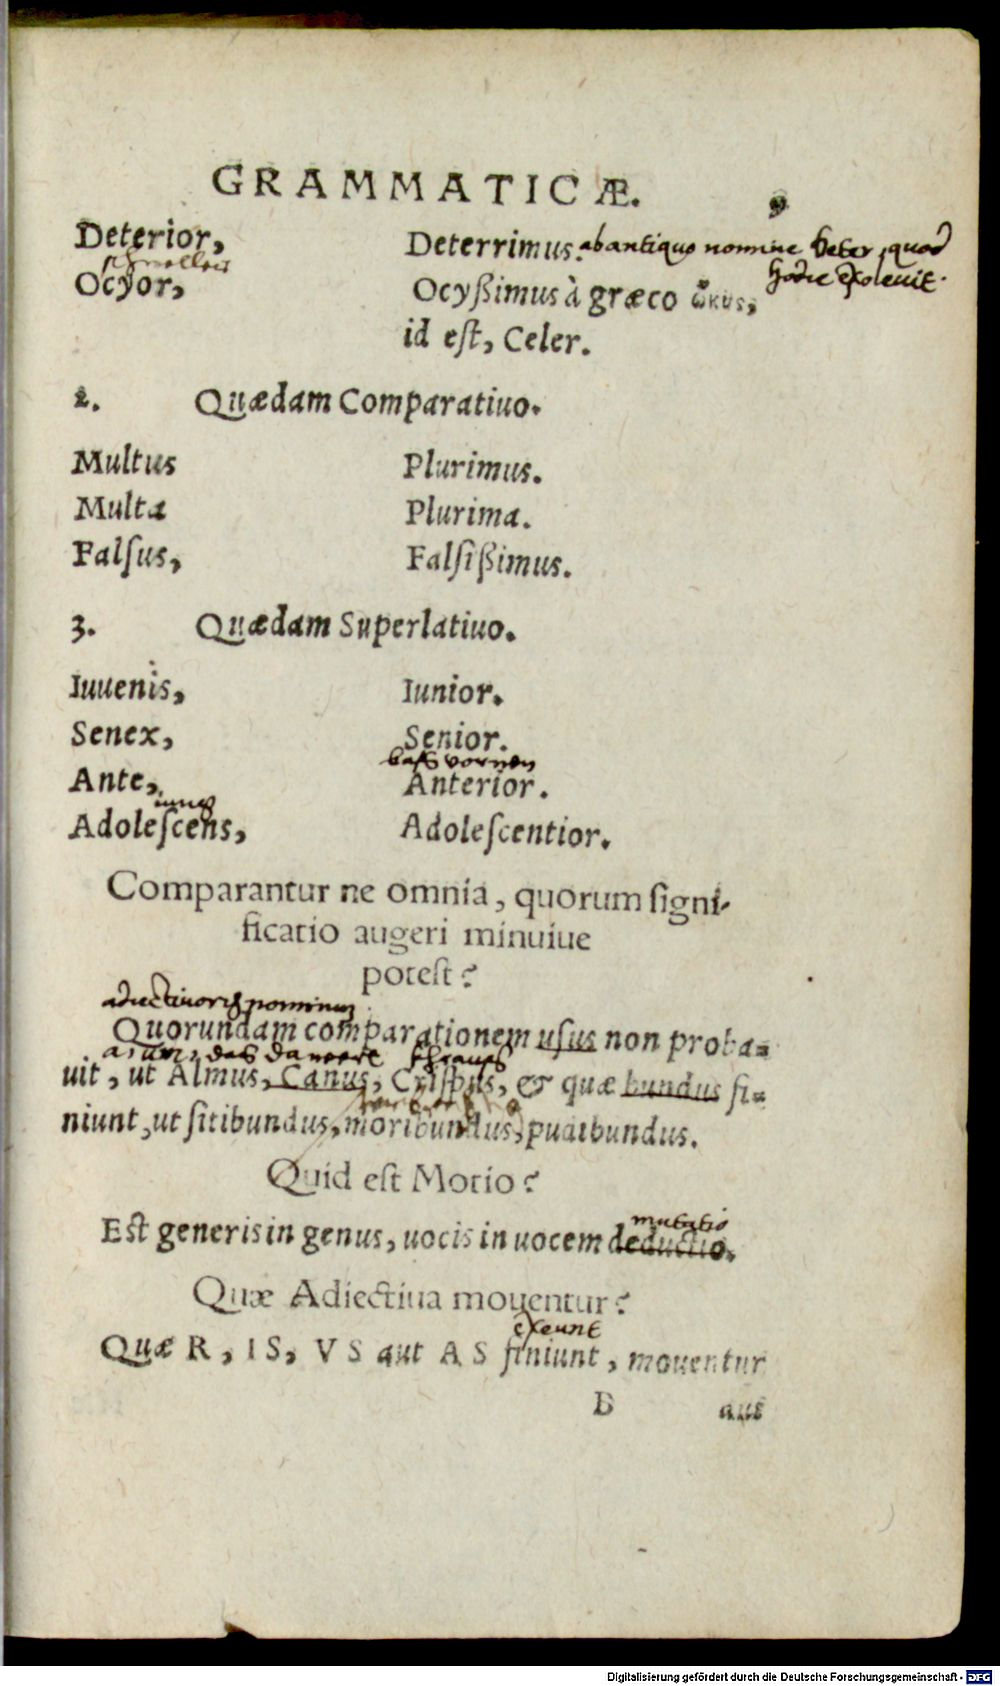 GRAMMATICÆ.
9
Deterior, Deterrimus. ab antiquo nomine deter, quod
schneller hodie exolevit.
Ocyor, Ocyßimus à græco ὠκυς,
id eſt, Celer.
2. Quædam Comparatiuo.
Multus Plurimus.
Multa Plurima.
Falſus, Falſißimus.
3. Quædam Superlatiuo.
Iuuenis, Iunior.
Senex, Senior.
baſs vornen
Ante, Anterior.
iung
Adoleſcens, Adoleſcentior.
Comparantur ne omnia, quorum ſigni-
ficatio augeri minuiue
poteſt?
adiectivorum nominum
Quorundam comparationem uſus non proba=
das khraus
uit, ut Almus, Canus, Criſpus, & quæ bundus fi=
niunt, ut ſitibundus, moribundus, pudibundus.
Quid eſt Motio?
mutatio
Eſt generis in genus, uocis in uocem deductio.
Quæ Adiectiua mouentur?
exeunt
Quæ R, IS, VS aut AS finiunt, mouentur
B aut